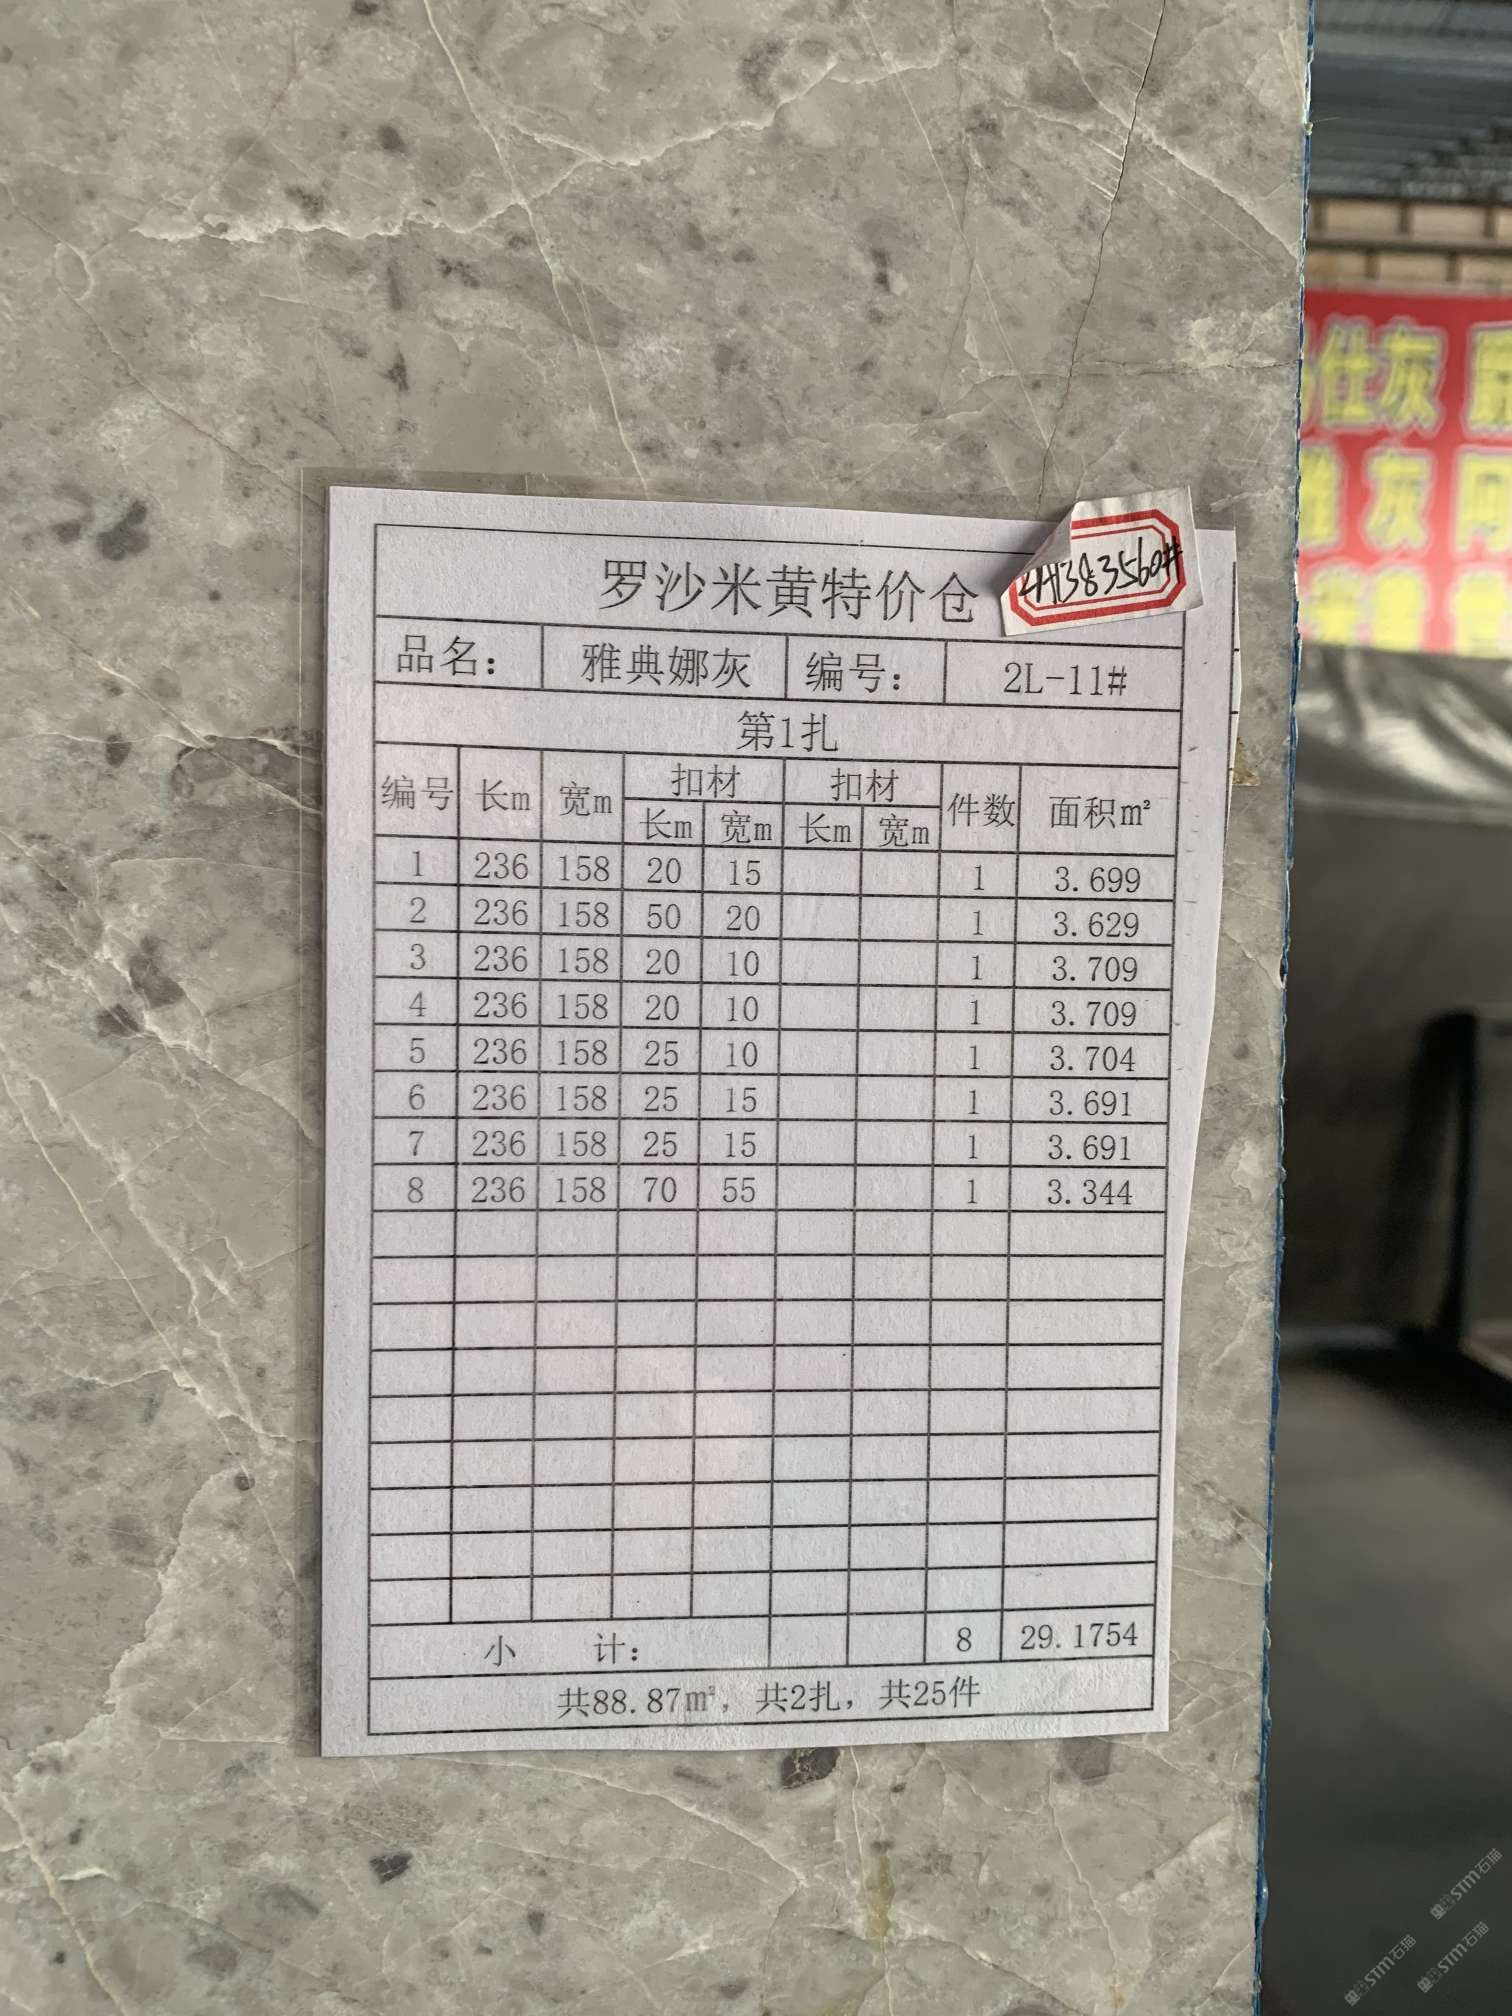 仕灰
灰
罗沙米黄特价仓
品名： 雅典娜灰 编号： 2L-11#
第1扎
编号 长m 宽m 扣材 扣材 件数 面积m²
长m 宽m 长m 宽m
1 236 158 20 15 1 3.699
2 236 158 50 20 1 3.629
3 236 158 20 10 1 3.709
4 236 158 20 10 1 3.709
5 236 158 25 10 1 3.704
6 236 158 25 15 1 3.691
7 236 158 25 15 1 3.691
8 236 158 70 55 1 3.344
小 计： 8 29.1754
共88.87m²，共2扎，共25件
STM石猫
STM石猫
STM石猫